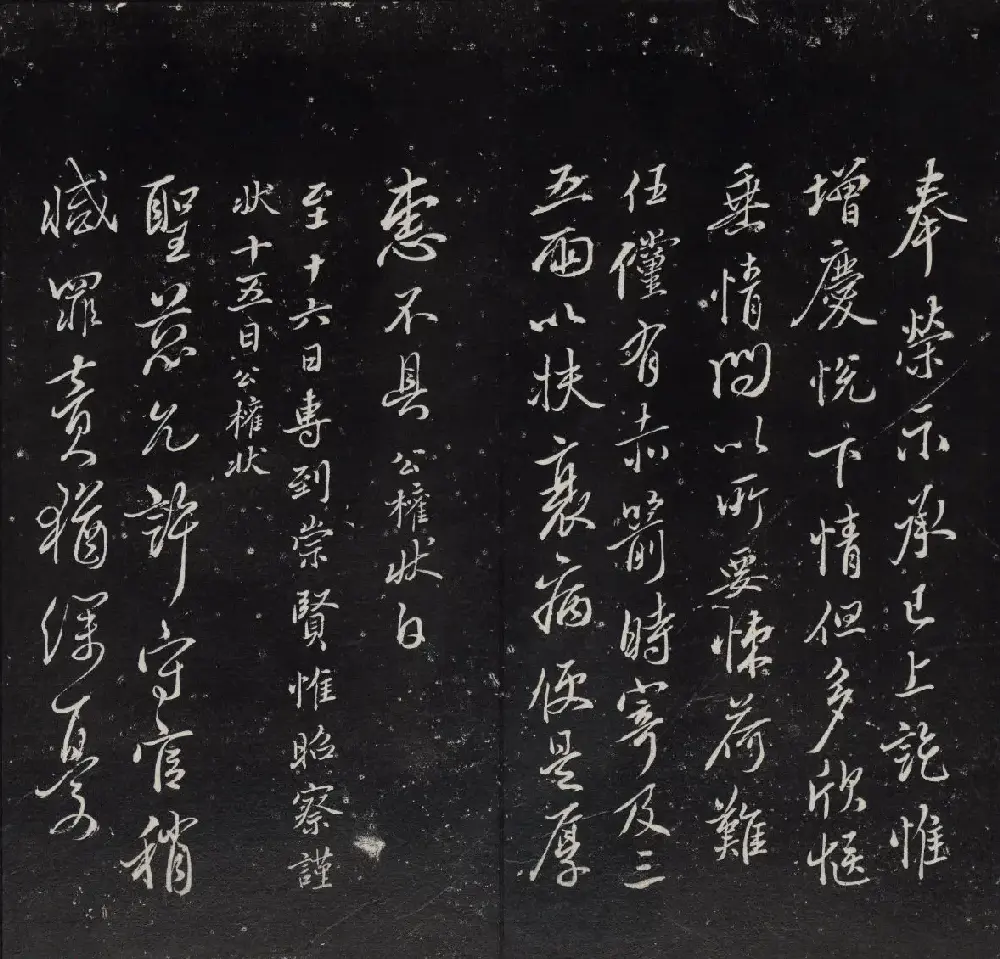 奉榮示承已上訖惟
增慶悅下情但多欣愜
垂情問以所要悚荷難
任儻有赤箭時寄及三
五兩以扶衰病便是厚
惠不具公權狀白
至十六日專到崇賢惟昭察謹
狀十五日公權狀
聖慈允許守官稍
減罪責猶深